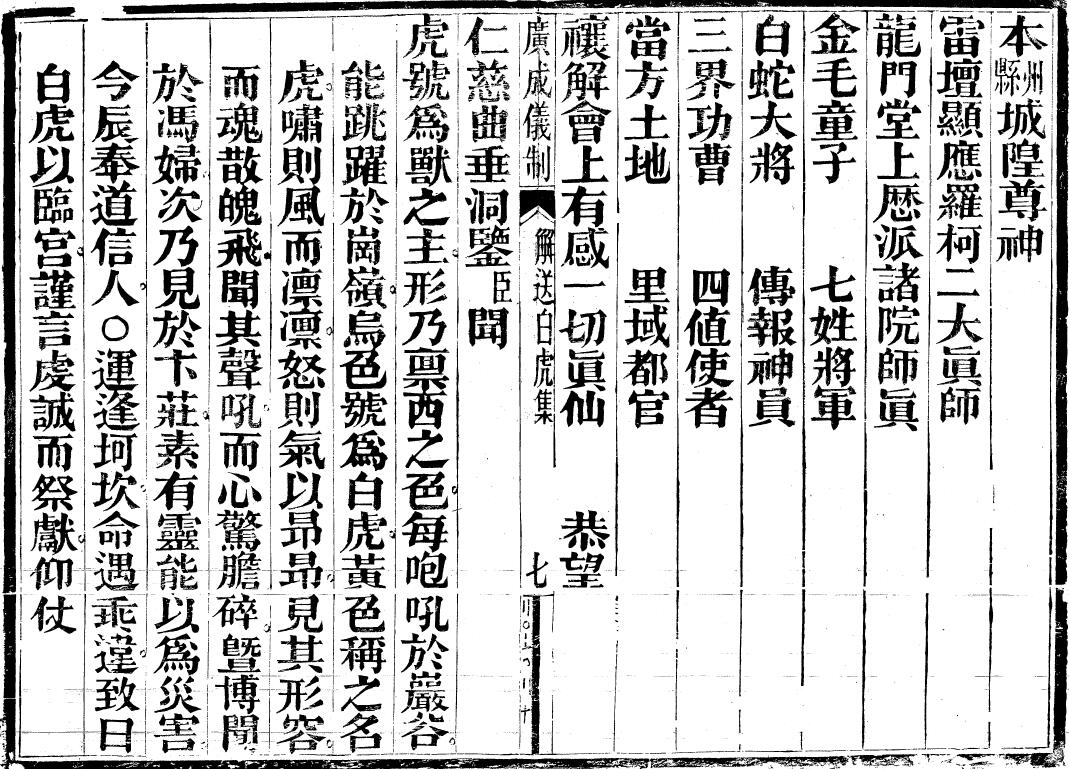 本州縣城隍尊神
雷壇顯應羅柯二大眞師
龍門堂上歷派諸院師眞
金毛童子　七姓將軍
白蛇大將　傳報神員
三界功曹　四値使者
當方土地　里域都官
禳解會上有感一切眞仙　恭望
廣成儀制　解送白虎集　七
仁慈曲垂洞鑒臣聞
虎號爲獸之主形乃禀西之色。每咆吼於巖谷。
能跳躍於崗嶺。烏色號爲白虎。黃色稱之名
虎。嘯則風而凛凛。怒則氣以昂昂。見其形容。
而魂散魄飛。聞其聲吼。而心驚膽碎。曁博聞
於馮婦。次乃見於卞莊。素有靈能以爲災害
今辰奉道信人。〇運逢坷坎。命遇乖違。致日
白虎以臨宮。謹言虔誠而祭獻。仰仗